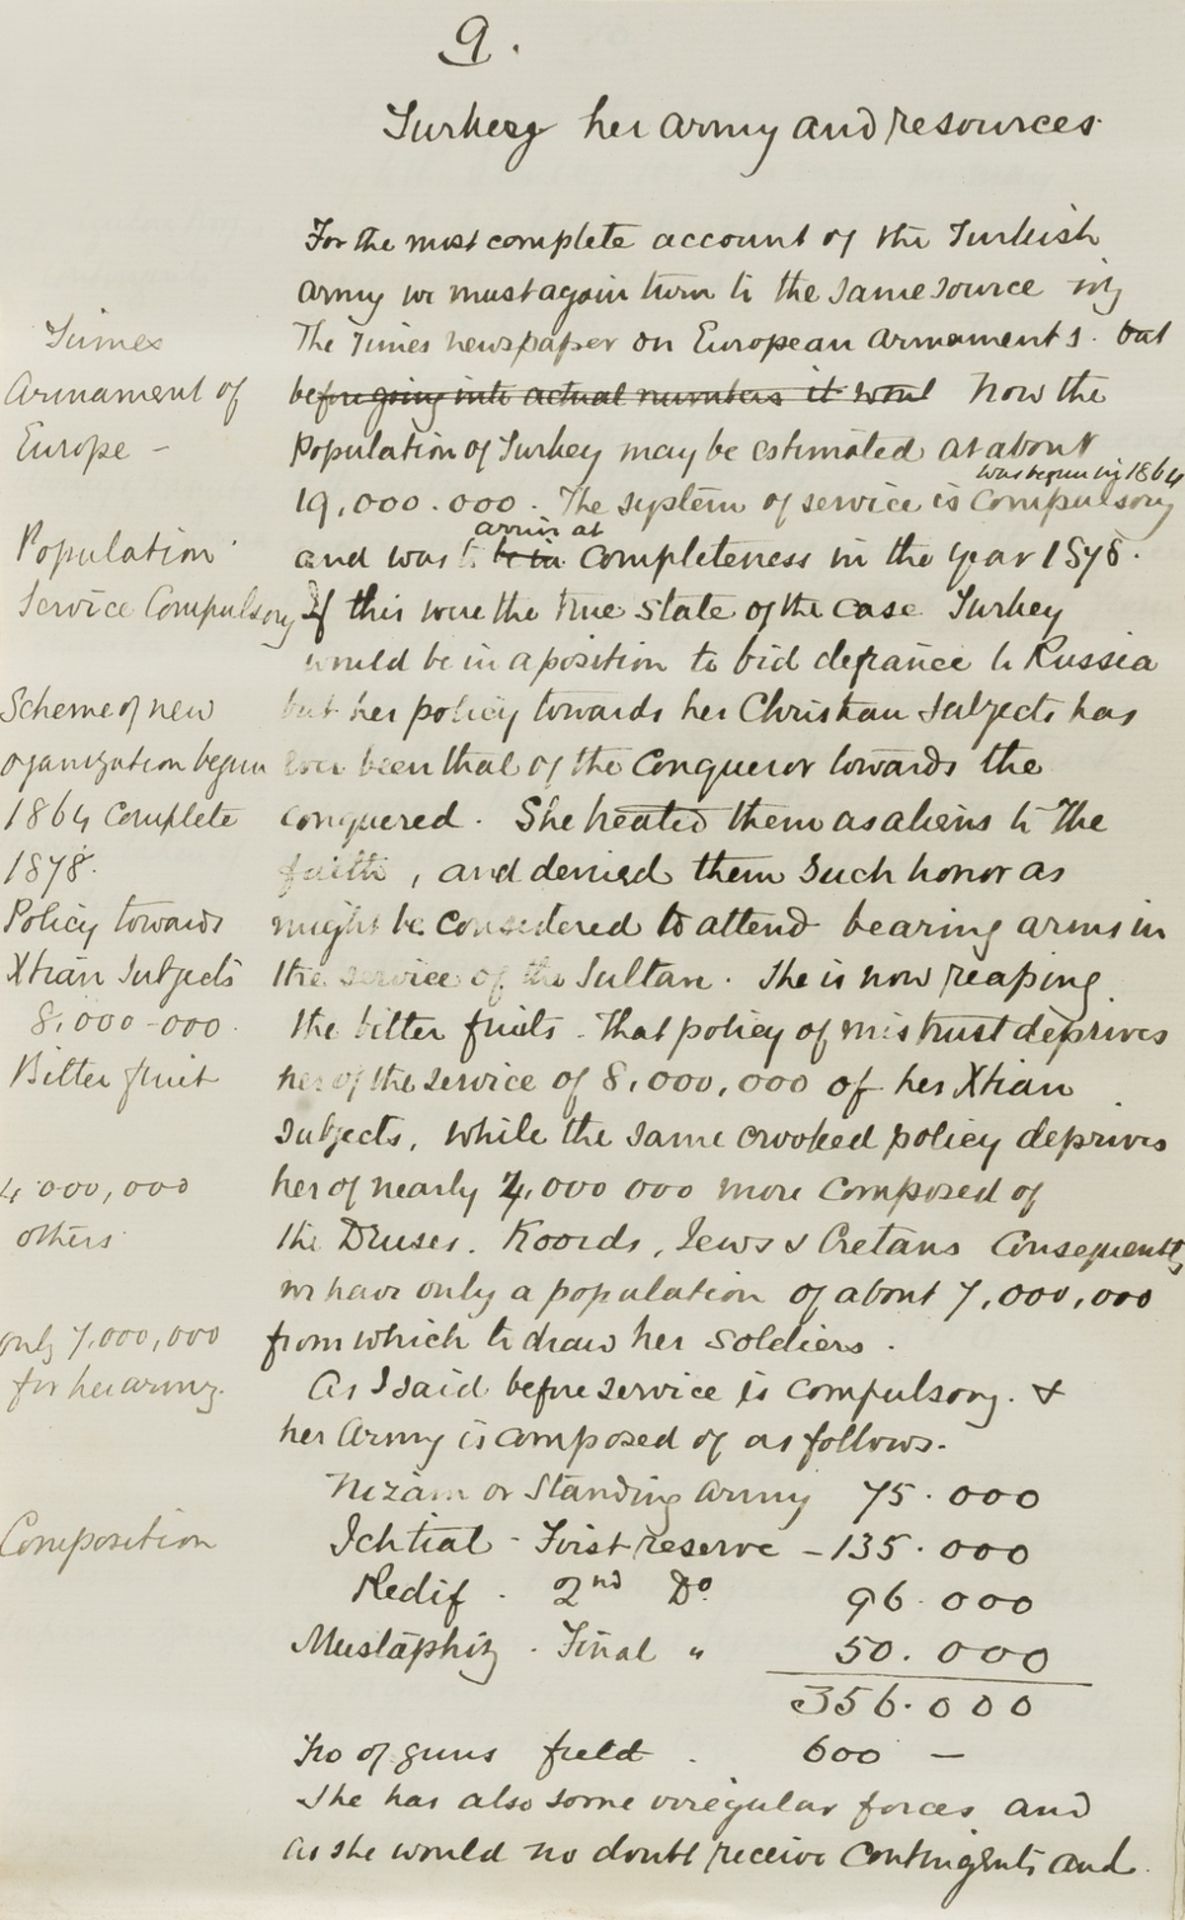 9.
Turkey her army and resources
For the most complete account of the Turkish
army we must again turn to the same source viz
Times
The Times newspaper on European armaments. but
Armament of
before going into actual numbers it Now the
Europe -
Population of Turkey may be estimated at about
was begun in 1864
19,000.000. The system of service is compulsory
arrive at
Population
and was to be in completeness in the year 1878.
Service Compulsory
If this were the true state of the case Turkey
would be in a position to bid defiance to Russia
Scheme of new
but her policy towards her Christian subjects has
oganization begun
ever been that of the Conqueror towards the
1864 Complete
conquered. She treated them as aliens to the
1878.
faith, and denied them such honor as
Policy towards
might be considered to attend bearing arms in
Xtian Subjects
the service of the Sultan. She is now reaping
8,000-000.
the bitter fruits. That policy of mistrust deprives
Bitter fruit
her of the service of 8,000,000 of her Xtian
subjects, while the same crooked policy deprives
4,000,000
her of nearly 4,000 000 more composed of
others
the Druses. Koords, Jews & Cretans Consequently
we have only a population of about 7,000,000
only 7,000,000
from which to draw her soldiers.
for her army.
As I said before service is compulsory. &
her Army is composed of as follows.
Nizam or Standing army 75.000
Composition
Ichtial - First reserve - 135.000
Redif. 2nd Do. 96.000
Mustaphiz. Final " 50.000
356.000
No of guns field. 600 —
She has also some irregular forces and
as she would no doubt receive contingents and